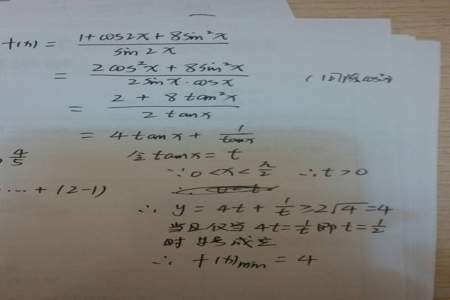 f(x) = (1+cos2x+8sin²x)/(sin2x)
= (2cos²x+8sin²x)/(2sinx·cosx) (同除cos²x)
= (2+8tan²x)/(2tanx)
= 4tanx + 1/tanx
4/5
令tanx=t
∵0<x<π/2 ∴t>0
…+(2-1)
∴ y=4t+1/t≥2√4=4
当且仅当4t=1/t即t=1/2
时等号成立
∴ f(x)min=4